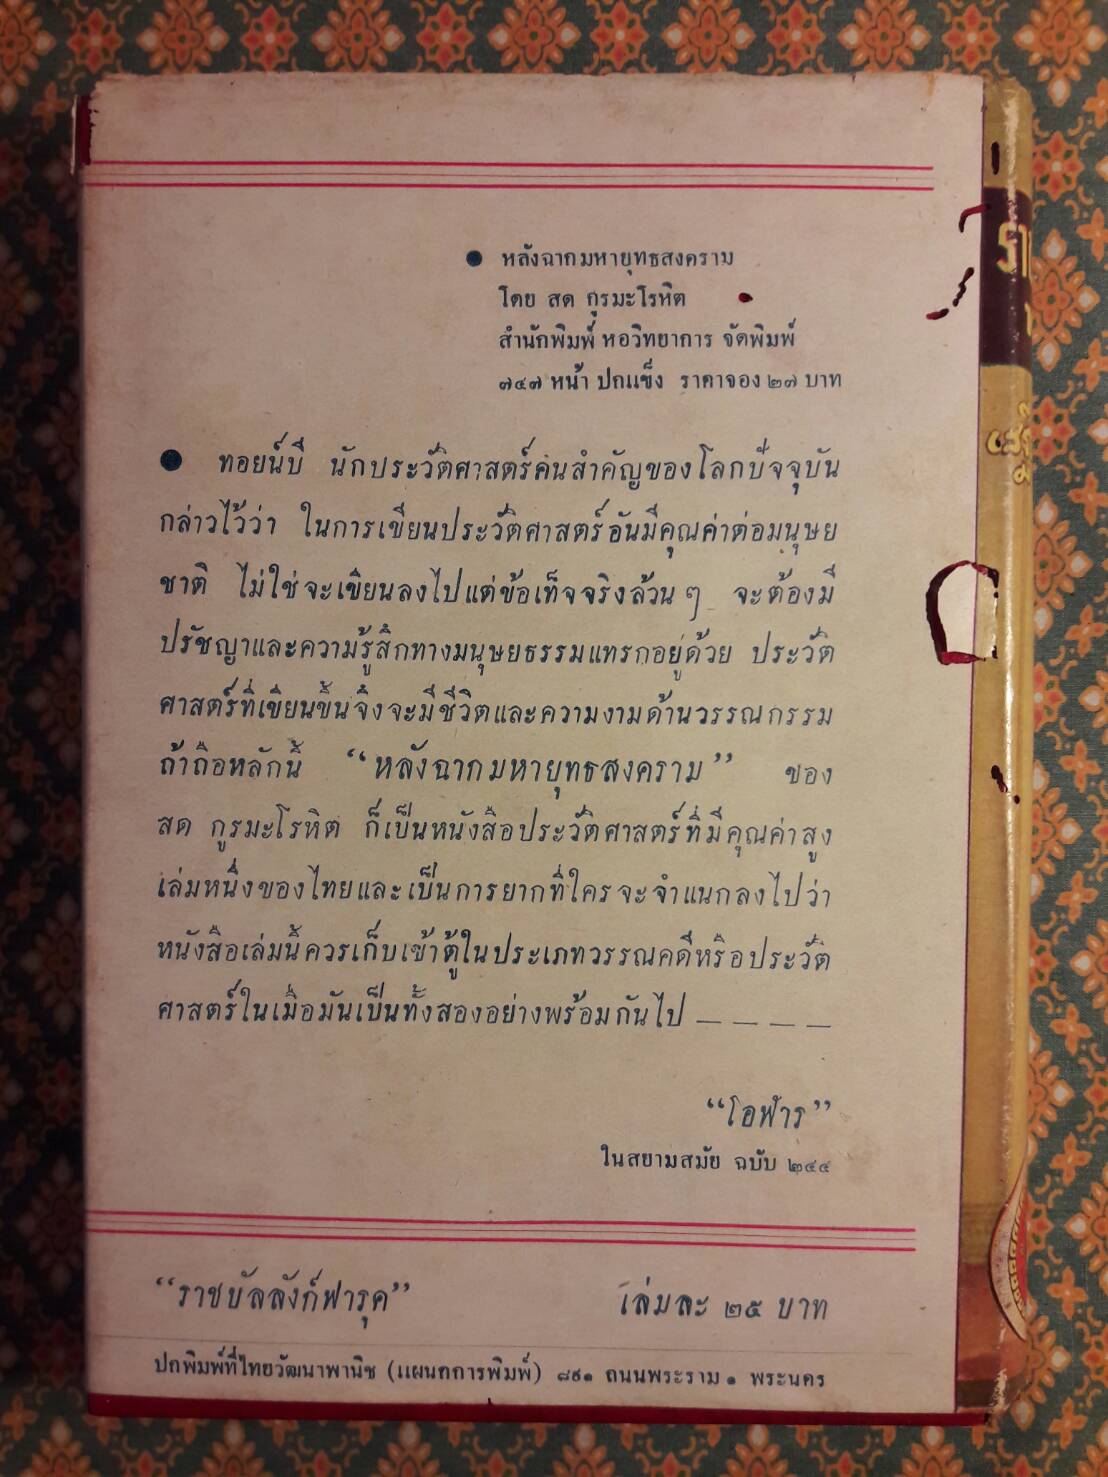 ● หลังฉากมหายุทธสงคราม
โดย สด กูรมะโรหิต
สำนักพิมพ์ หอวิทยาการ จัดพิมพ์
๗๔๗ หน้า ปกแข็ง ราคาจอง ๒๗ บาท
● ทอยน์บี นักประวัติศาสตร์คนสำคัญของโลกปัจจุบัน
กล่าวไว้ว่า ในการเขียนประวัติศาสตร์อันมีคุณค่าต่อมนุษย
ชาติ ไม่ใช่จะเขียนลงไปแต่ข้อเท็จจริงล้วน ๆ จะต้องมี
ปรัชญาและความรู้สึกทางมนุษยธรรมแทรกอยู่ด้วย ประวัติ
ศาสตร์ที่เขียนขึ้นจึงจะมีชีวิตและความงามด้านวรรณกรรม
ถ้าถือหลักนี้ “หลังฉากมหายุทธสงคราม” ของ
สด กูรมะโรหิต ก็เป็นหนังสือประวัติศาสตร์ที่มีคุณค่าสูง
เล่มหนึ่งของไทยและเป็นการยากที่ใครจะจำแนกลงไปว่า
หนังสือเล่มนี้ควรเก็บเข้าตู้ในประเภทวรรณคดีหรือประวัติ
ศาสตร์ในเมื่อมันเป็นทั้งสองอย่างพร้อมกันไป _ _ _ _
“โอฬาร”
ในสยามสมัย ฉบับ ๒๔๔
“ราชบัลลังก์ฟารุค” เล่มละ ๒๕ บาท
ปกพิมพ์ที่ไทยวัฒนาพานิช (แผนกการพิมพ์) ๘๙๑ ถนนพระราม ๑ พระนคร